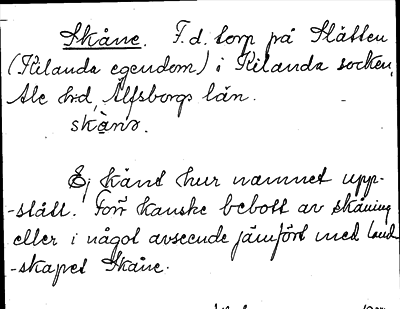 Skåne. F.d. torp på Slätten
(Kilanda egendom) i Kilanda socken,
Ale hd, Älfsborgs län.
skånə.
Ej känt hur namnet upp-
-stått. Torp kanske bebott av skåning
eller i något avseende jämfört med land-
-skapet Skåne.